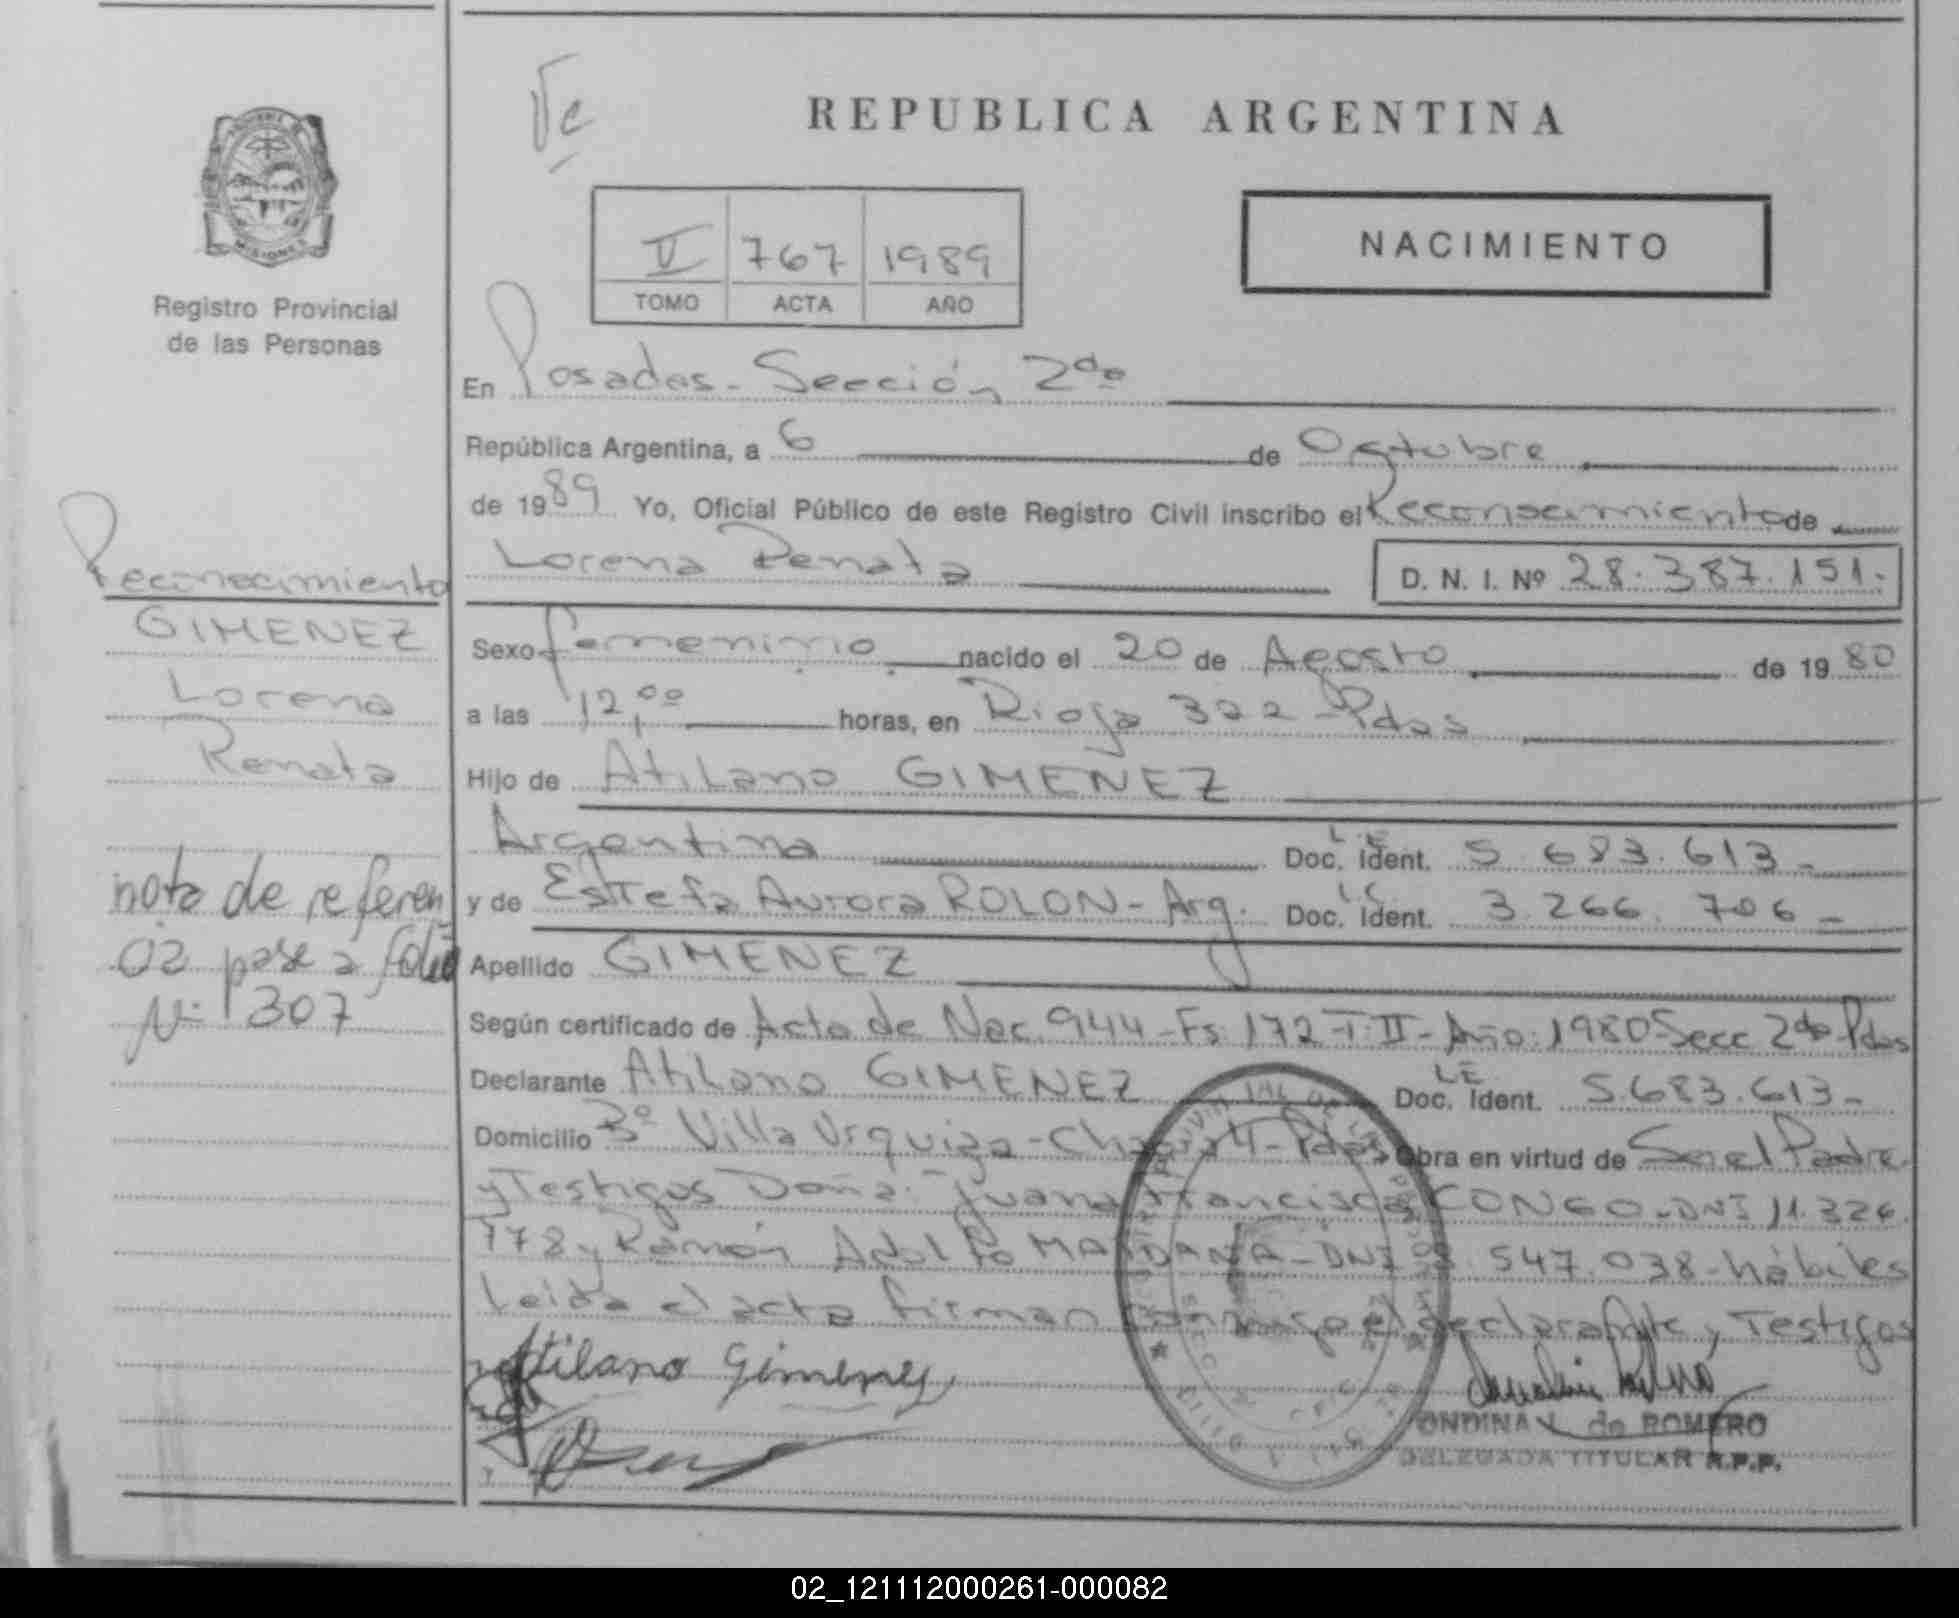 REPUBLICA ARGENTINA
MISIONES
Registro Provincial
de las Personas
V 767 1989
TOMO ACTA AÑO
NACIMIENTO
En Posadas - Sección 2da
República Argentina, a 6 de Octubre
de 1989 Yo, Oficial Público de este Registro Civil inscribo el Reconocimiento de
Lorena Renata D. N. I. Nº 28.387.151.
Reconocimiento
GIMENEZ
Lorena
Renata
nota de referen
02 pase a folio
Nº 307
Sexo femenino nacido el 20 de Agosto de 1980
a las 12,00 horas, en Rioja 322 - Pdas
Hijo de Atilano GIMENEZ
Argentina Doc. Ident. L.E 5.683.613 -
y de Estrefa Aurora ROLON - Arg. Doc. Ident. LC 3.266.706 -
Apellido GIMENEZ
Según certificado de Acta de Nac. 944 - Fs. 172 - T. II - Año: 1980 Secc 2da Pdas
Declarante Atilano GIMENEZ Doc. Ident. LE 5.683.613 -
Domicilio Bº Villa Urquiza - 4 - Pdas Obra en virtud de Ser el Padre
y Testigos Doña: Juana Francisca CONGO - DNI 11.326.
778 y Ramón Adolfo MAIDANA - DNI 547.038 - hábiles
Leida el acta firman conmigo el declarante y Testigos
Atilano Gimenez
ONDINA de ROMERO
DELEGADA TITULAR R.P.P.
02_121112000261-000082